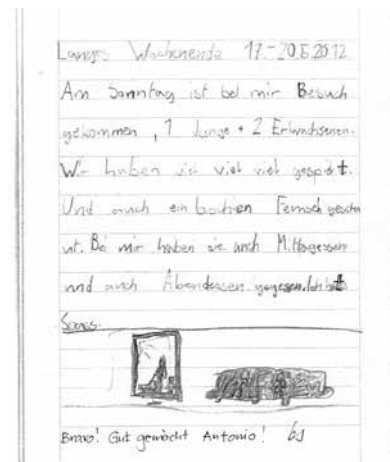 Langes Wochenende 17.-20.5.2012
Am Sonntag ist bei mir Besuch
gekommen, 1 Junge + 2 Erwachsenen.
Wir haben viel viel viel gespielt.
Und auch ein bischen Fernseh gescha
ut. Bei mir haben sie auch Mittagessen
und auch Abendessen gegessen. Ich
Spass.
Bravo! Gut gemacht Antonio!